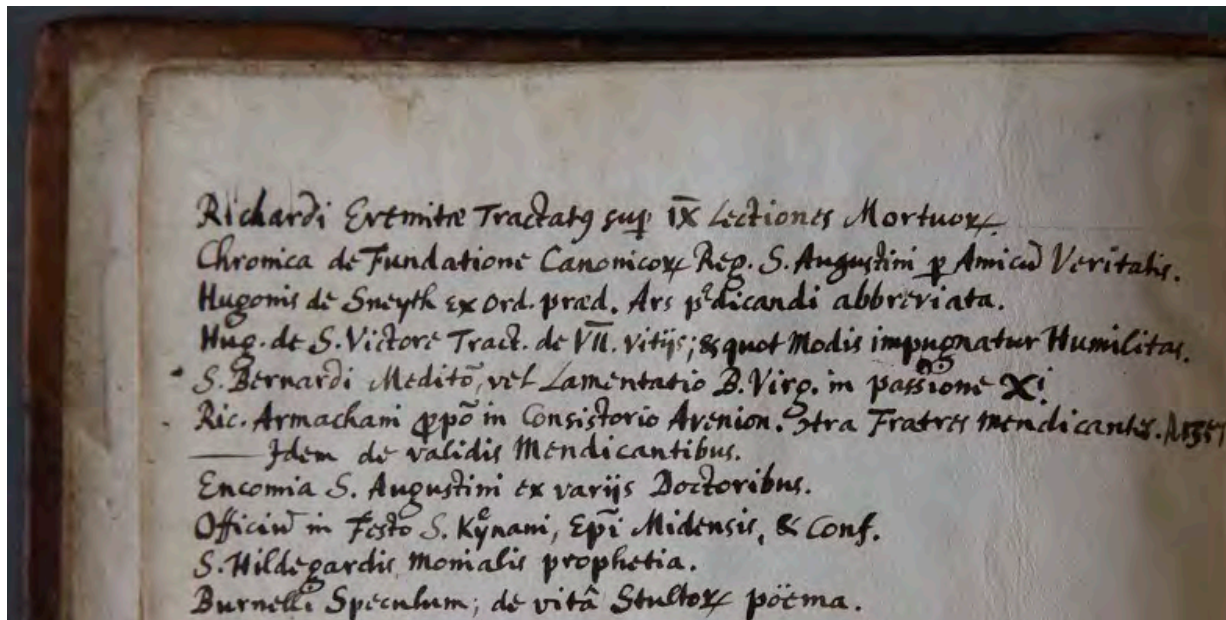 Richardi Eremitæ Tractatꝯ suꝑ IX Lectiones Mortuoꝝ.
Chronica de Fundatione Canonicoꝝ Reg. S. Augustini ꝑ Amicū Veritatis.
Hugonis de Sneyth ex Ord. præd. Ars p̄dicandi abbreviata.
Hug. de S. Victore Tract. de VII. vitijs; & quot Modis impugnatur Humilitas.
S. Bernardi Meditō, vel Lamentatio B. Virg. in passione Xi.
Ric. Armachani ꝓpō in Consistorio Avenion. ꝯtra Fratres mendicantes. A 1357
—— Idem de validis Mendicantibus.
Encomia S. Augustini ex varijs Doctoribus.
Officiū in Festo S. Kẙnani, Epī Midensis, & Conf.
S. Hildegardis monialis prophetia.
Burnelli Speculum; de vitâ Stultoꝝ pöema.